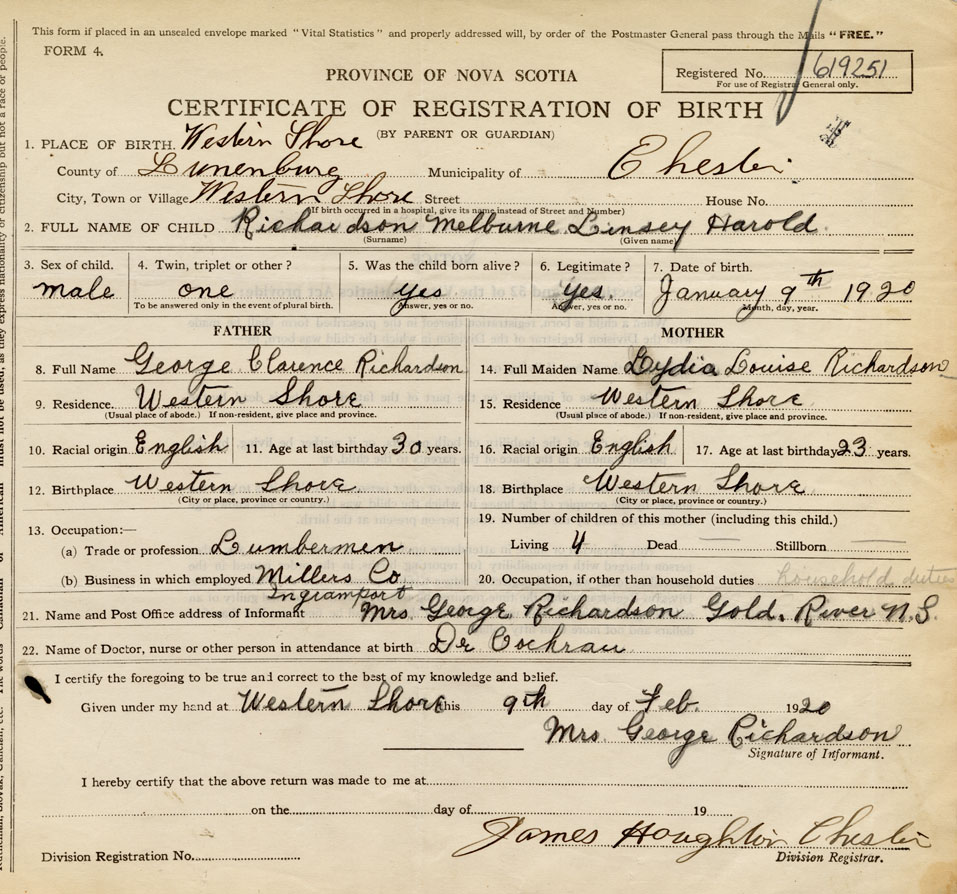 This form if placed in an unsealed envelope marked "Vital Statistics" and properly addressed will, by order of the Postmaster General pass through the Mails "FREE."
FORM 4.
PROVINCE OF NOVA SCOTIA
Registered No. 619251
For use of Registrar General only.
CERTIFICATE OF REGISTRATION OF BIRTH
(BY PARENT OR GUARDIAN)
1. PLACE OF BIRTH. Western Shore
County of Lunenburg Municipality of Chester
City, Town or Village Western Shore Street House No.
(If birth occurred in a hospital, give its name instead of Street and Number)
2. FULL NAME OF CHILD Richardson Melburne Linsey Harold
(Surname) (Given name)
3. Sex of child. 4. Twin, triplet or other? 5. Was the child born alive? 6. Legitimate? 7. Date of birth.
male one Yes Yes. January 9th 1920
To be answered only in the event of plural birth. Answer, yes or no. Answer, yes or no. Month, day, year.
FATHER MOTHER
8. Full Name George Clarence Richardson 14. Full Maiden Name Lydia Louise Richardson
9. Residence. Western Shore 15. Residence Western Shore
(Usual place of abode.) If non-resident, give place and province. (Usual place of abode.) If non-resident, give place and province.
10. Racial origin English 11. Age at last birthday 30 years. 16. Racial origin English 17. Age at last birthday 23 years.
12. Birthplace Western Shore 18. Birthplace Western Shore
(City or place, province or country.) (City or place, province or country.)
13. Occupation:— 19. Number of children of this mother (including this child.)
(a) Trade or profession Lumbermen Living 4 Dead — Stillborn —
(b) Business in which employed Millers Co. 20. Occupation, if other than household duties household duties
Ingramport
21. Name and Post Office address of Informant Mrs. George Richardson Gold River N.S.
22. Name of Doctor, nurse or other person in attendance at birth Dr Cochran
I certify the foregoing to be true and correct to the best of my knowledge and belief.
Given under my hand at Western Shore this 9th day of Feb. 1920
Mrs George Richardson
Signature of Informant.
I hereby certify that the above return was made to me at
on the day of 19
James Houghton Chester
Division Registration No. Division Registrar.